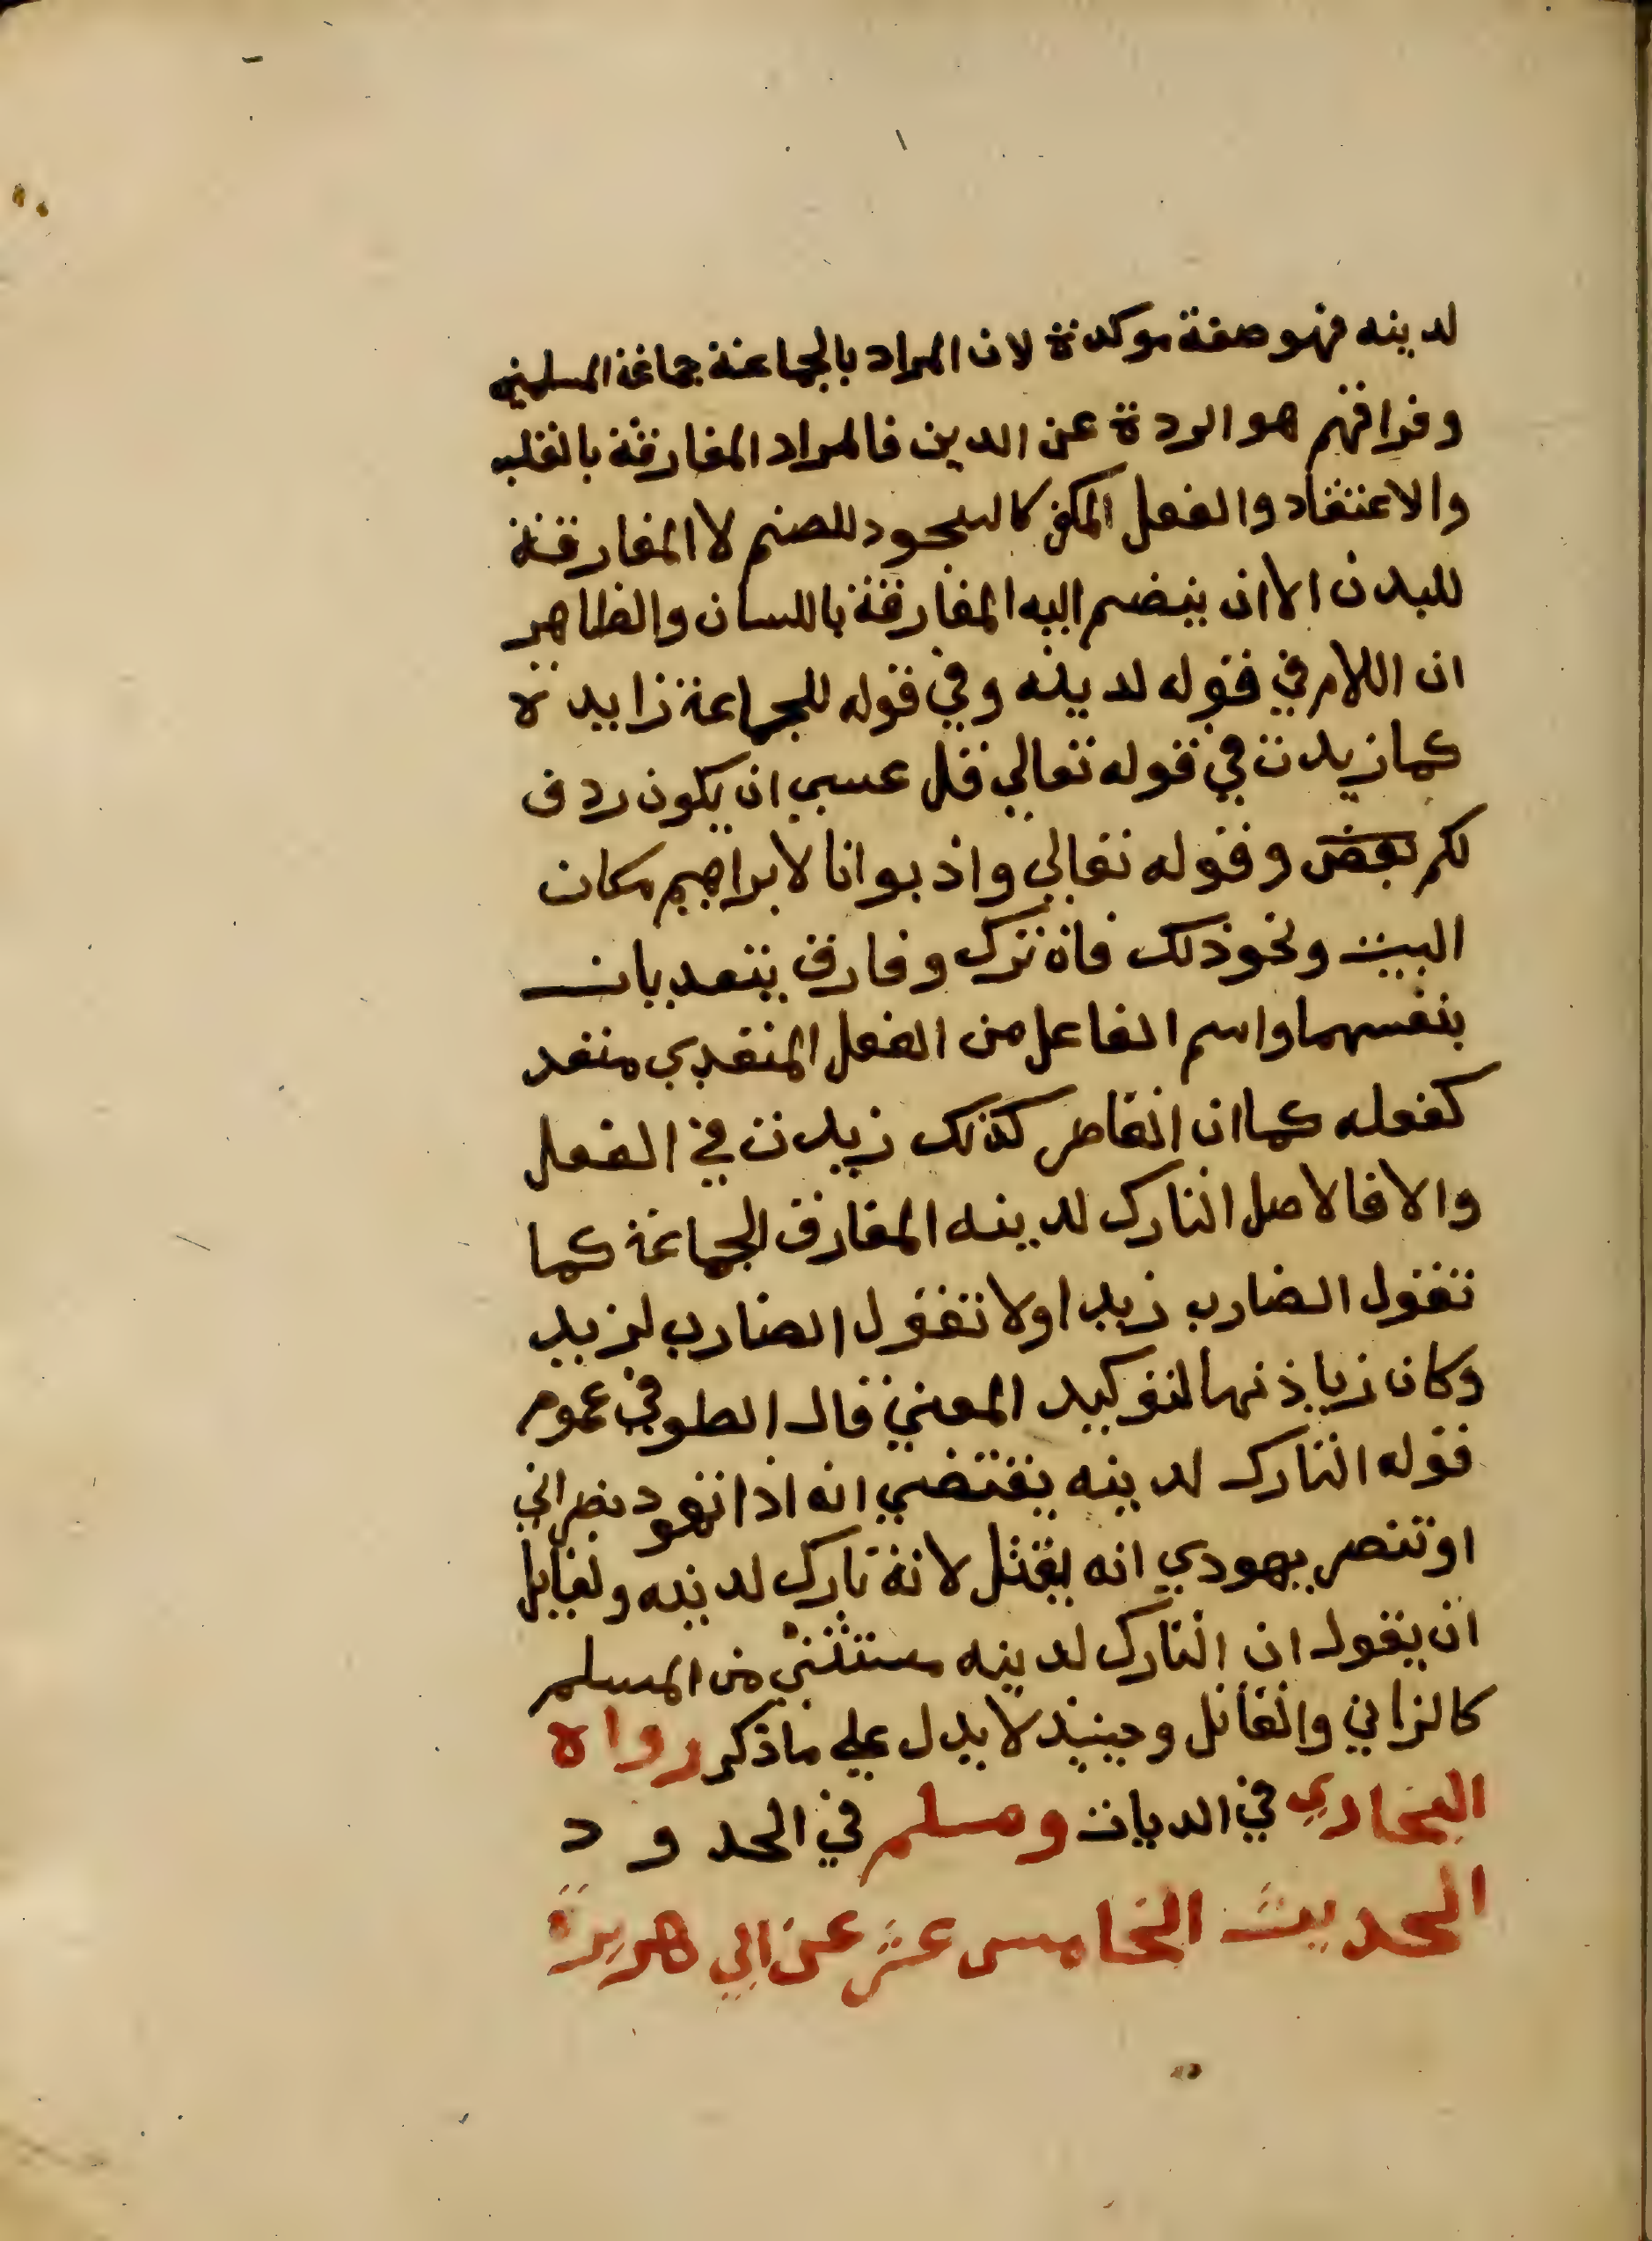 لدينه فهو صفة موكدة لان المراد بالجماعة جماعة المسلمين
وفراقهم هو الردة عن الدين فالمراد المفارقة بالقلب
والاعتقاد والفعل المكفر كالسجود للصنم لا المفارقة
للبدن الا ان ينضم اليه المفارقة باللسان والظاهر
ان اللام في قوله لدينه وفي قوله للجماعة زايدة
كما زيدت في قوله تعالي قل عسي ان يكون ردف
لكم بعض وقوله تعالي واذ بوانا لابراهيم مكان
البيت ونحو ذلك فان ترك وفارق يتعديان
بنفسهما واسم الفاعل من الفعل المتعدي متعد
كفعله كما ان القاصر كذلك زيدت في الفعل
والا فالاصل التارك لدينه المفارق الجماعة كما
تقول الضارب زيدا ولا تقول الضارب لزيد
وكان زيادتها لتوكيد المعني قال الطوفي عموم
قوله التارك لدينه يقتضي انه اذا تهود نصراني
او تنصر يهودي انه يقتل لانه تارك لدينه ولقايل
ان يقول ان التارك لدينه مستثني من المسلم
كالزاني والقاتل وحينيذ لا يدل علي ما ذكر رواه
البخاري في الديات ومسلم في الحدود
الحديث الخامس عشر عن ابي هريرة